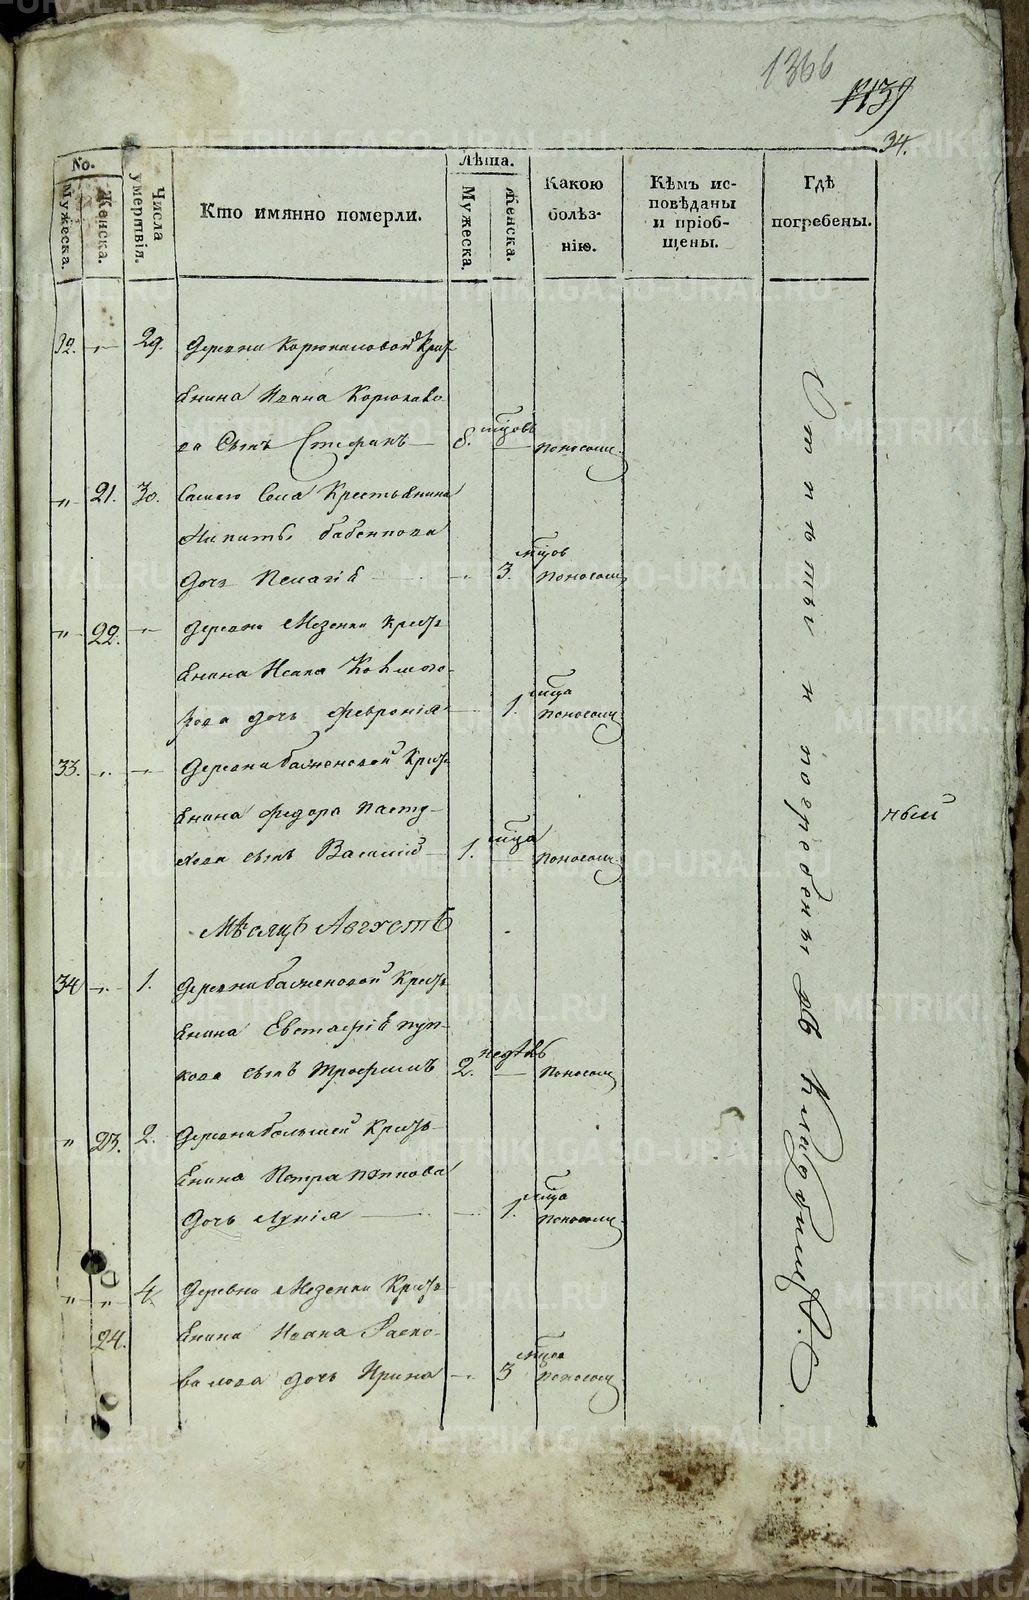 1366
1139
34.
No.
Мужеска.
Женска.
Числа умертвія.
Кто имянно померли.
Лѣта.
Мужеска.
Женска.
Какою болѣзнію.
Кѣмъ исповѣданы и пріобщены.
Гдѣ погребены.
32. „ 29. Деревни Крестья
янина Ивана Корюкаво
ва Сынъ Стефанъ 8. мцовъ поносомъ
„ 21. 30. Самаго Села Крестьянина
Никиты Бабенкова
дочь Пелагія „ 3. мцов поносомъ
„ 22. „ деревни Мезенки Кресть
янина Исака
дочь Февронія 1. мца поносомъ
33. „ „ деревни Баженовой Кресть
янина Федора Пасту
хова сынъ Василий 1. мца поносомъ
Мѣсяцъ Августъ
34 „ 1. деревни Баженовой Кресть
янина Евстафія Пуп
кова сынъ Трофимъ 2. недѣль поносомъ
„ 23. 2. деревни Большей Кресть
янина Петра
дочь Лукія 1. мца поносомъ
„ „ 4. деревни Мезенки Кресть
24. янина Ивана Раско
валова дочь Ирина „ 3 мцов поносомъ
Отпѣты и погребены на Кладбищѣ.
METRIKI.GASO-URAL.RU